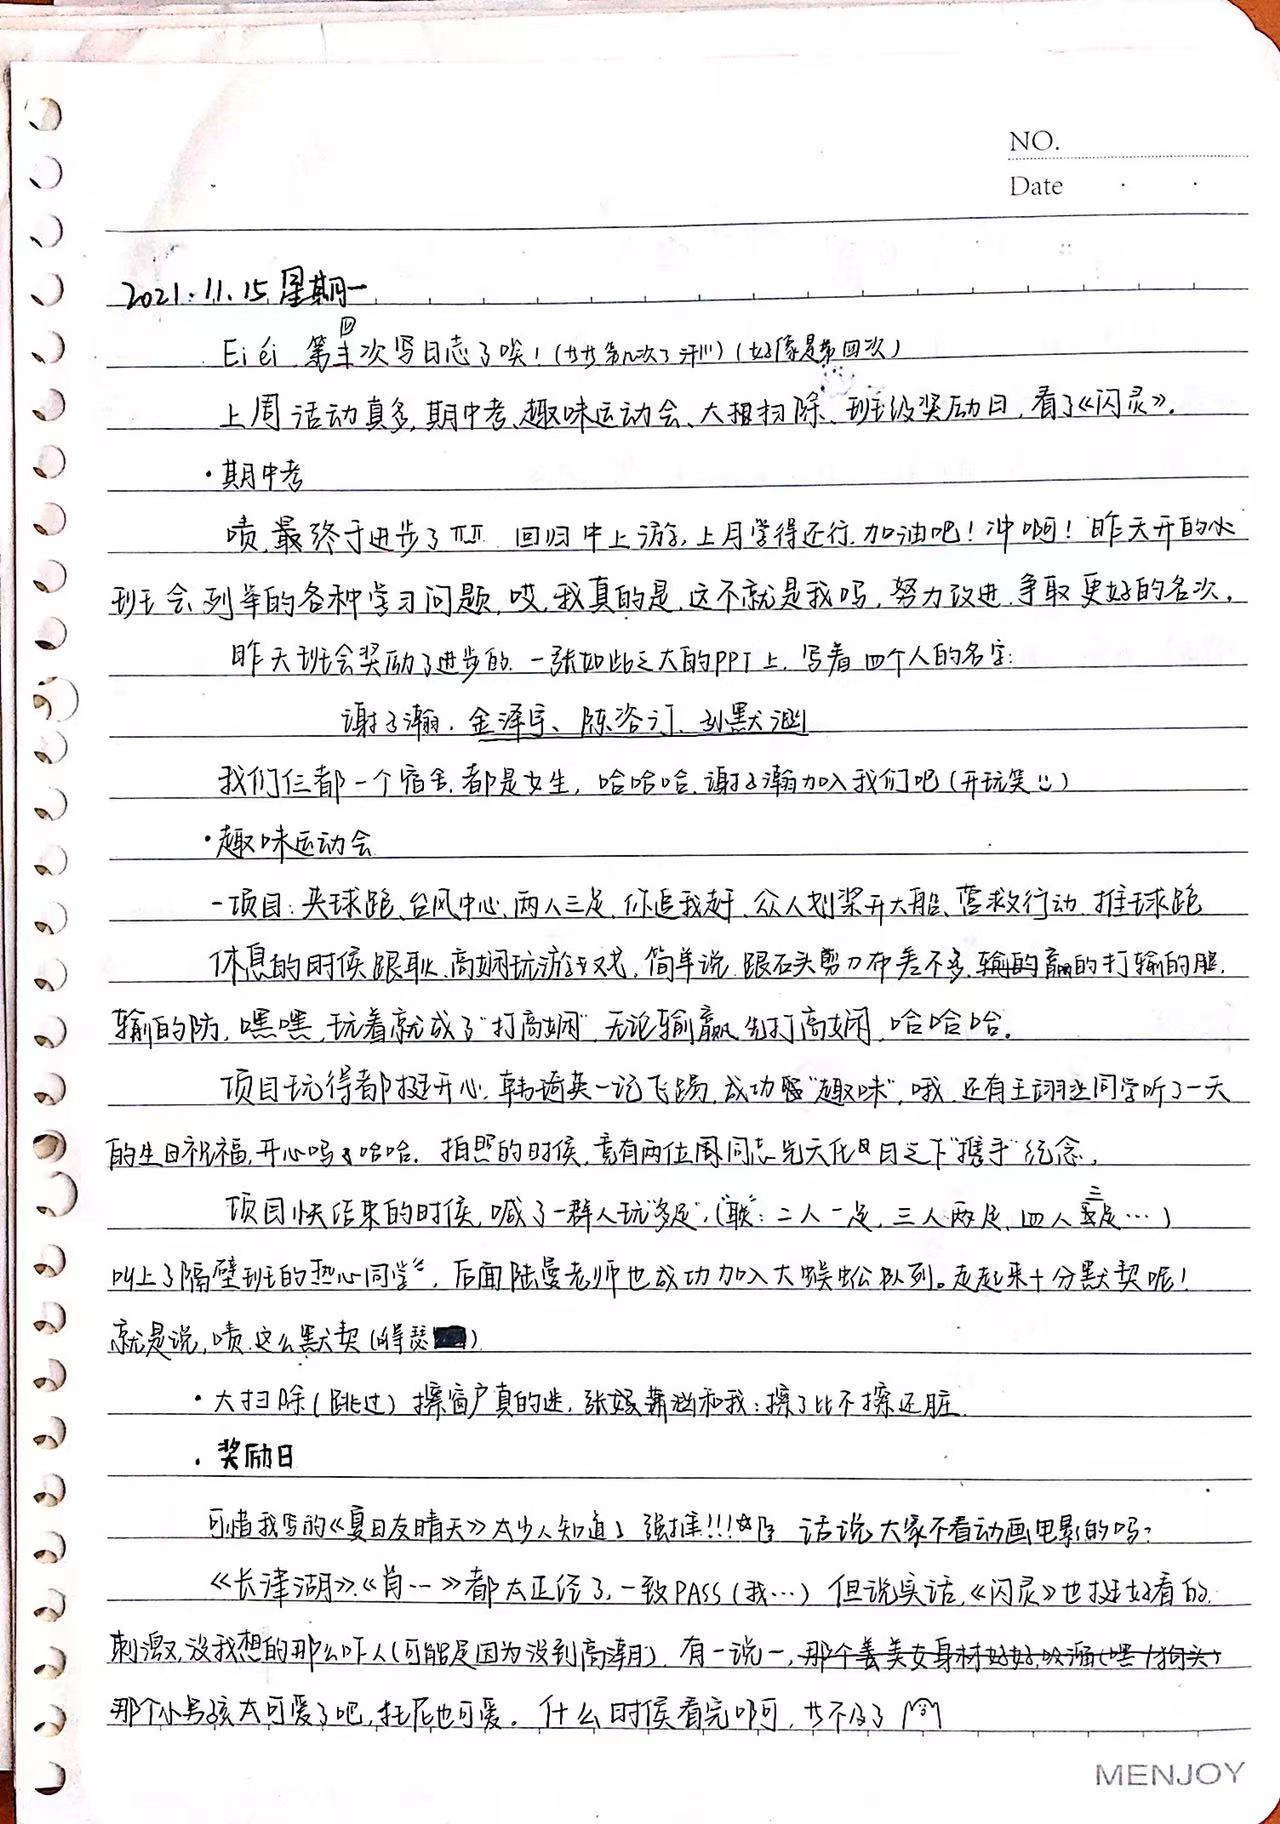 NO.
Date
2021.11.15 星期一
Ei éi 第四次写日志了唉！(好像是第四次)
上周活动真多,期中考、趣味运动会、大扫除、班级奖励日,看了《闪灵》。
·期中考
啧,最终于进步了 回归中上游,上月学得还行,加油吧！冲啊！昨天开的
班会,列举的各种学习问题,哎,我真的是,这不就是我吗,努力改进,争取更好的名次。
昨天班会奖励了进步的,一张如此之大的PPT上,写着四个人的名字:
谢子瀚、金泽宇、陈洛汀、孙默涵
我们仨都一个宿舍,都是女生,哈哈哈,谢子瀚加入我们吧(开玩笑)
·趣味运动会
-项目:夹球跑、台风中心、两人三足、你追我赶、众人划桨开大船、营救行动、推球跑
休息的时候跟耿、高娴玩游戏,简单说,跟石头剪刀布差不多,赢的打输的腿,
输的防,嘿嘿,玩着就成了"打高娴",无论输赢,先打高娴,哈哈哈。
项目玩得都挺开心,韩琦英一记飞踢,成功"趣味",哦,还有王翊丞同学听了一天
的生日祝福,开心吗 哈哈。拍照的时候,竟有两位周同志光天化日之下"携手"纪念。
项目快结束的时候,喊了一群人玩"多足",("联":二人一足,三人两足,四人三足…)
叫上了隔壁班的热心同学,后面陆曼老师也成功加入大蜈蚣队列。走起来十分默契呢！
就是说,啧,这么默契(得瑟)
·大扫除(跳过) 擦窗户真的迷,张 和我:擦了比不擦还脏。
·奖励日
可惜我写的《夏日友晴天》太少人知道了,强推!!! 话说,大家不看动画电影的吗?
《长津湖》、《肖…》都太正经了,一致PASS(我…) 但说实话,《闪灵》也挺好看的,
刺激,没我想的那么吓人(可能是因为没到高潮)。有一说一,
那个小男孩太可爱了吧,托尼也可爱。什么时候看完啊啊,等不及了
MENJOY